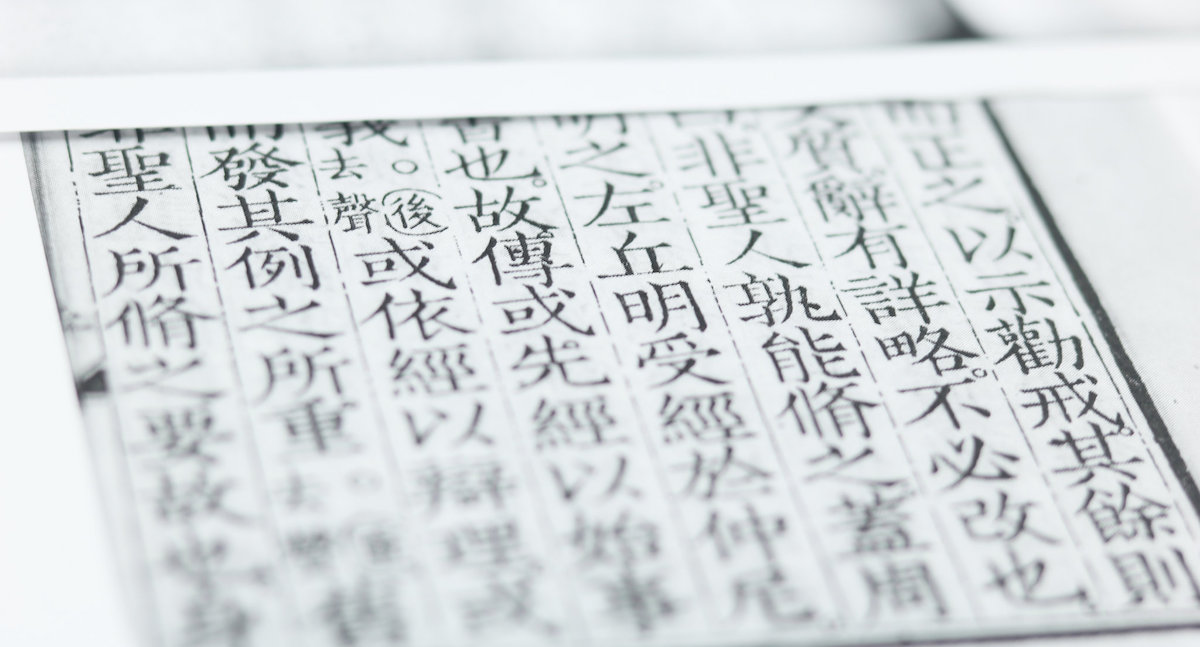 而正之。以示勸戒。其餘則
文質辭有詳略。不必改也
非聖人孰能脩之蓋周
明之。左丘明受經於仲尼
者也。故傳或先經以始事
義。後去聲或依經以辯理或
而發其例之所重。去聲舊
非聖人所脩之要故也身